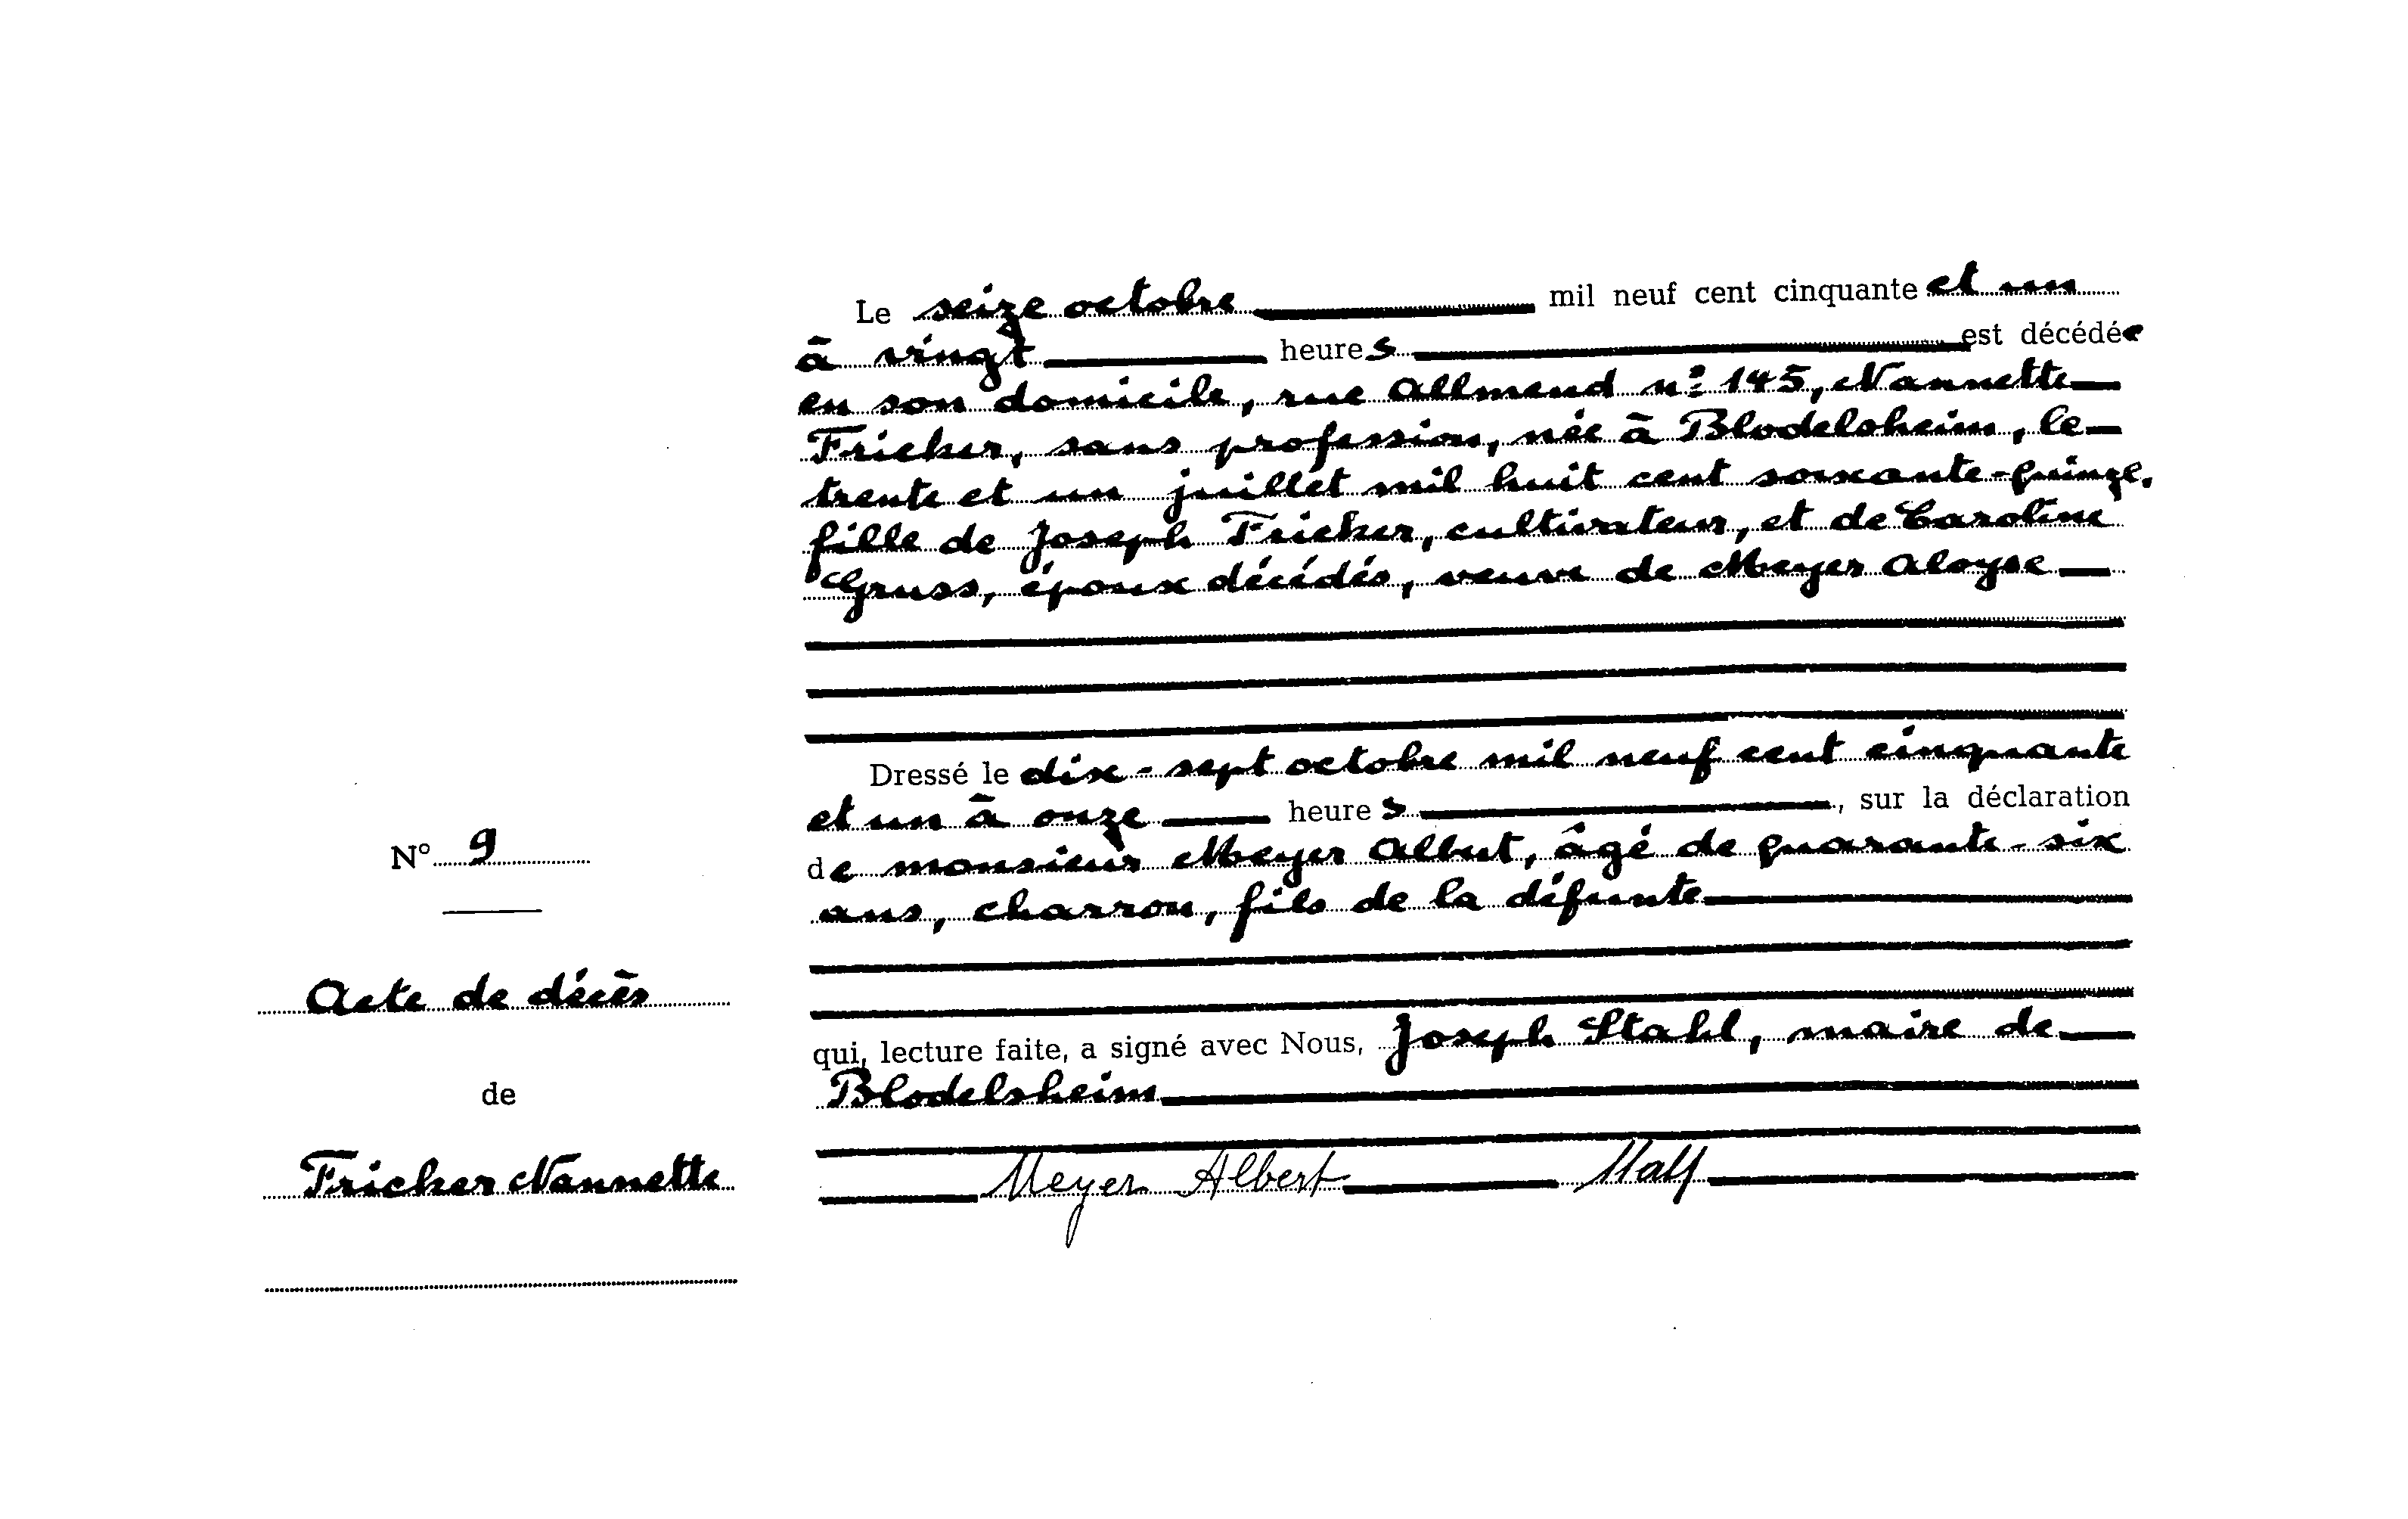 N° 9
Acte de décès
de
Fricker Nannette
Le seize octobre mil neuf cent cinquante et un
à vingt heures est décédée
en son domicile, rue Allmend n° 145, Nannette
Fricker, sans profession, née à Blodelsheim, le
trente et un juillet mil huit cent soixante-quinze,
fille de Joseph Fricker, cultivateur, et de Caroline
Gruss, époux décédés, veuve de Meyer Aloyse
Dressé le dix-sept octobre mil neuf cent cinquante
et un à onze heures, sur la déclaration
de monsieur Meyer Albert, âgé de quarante-six
ans, charron, fils de la défunte
qui, lecture faite, a signé avec Nous, Joseph Stahl, maire de
Blodelsheim
Meyer Albert